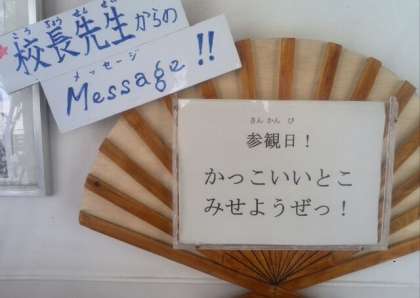 こうちょうせんせい
校長先生からの
メッセージ
Message!!
さんかんび
参観日！
かっこいいとこ
みせようぜっ！